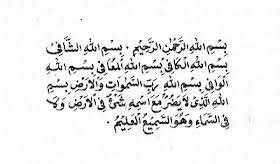 بِسْمِ اللهِ الرَّحْمٰنِ الرَّحِيْمِ . بِسْمِ اللهِ الشَّافِى
بِسْمِ اللهِ الْكَافِى بِسْمِ اللهِ الْمُعَافِى بِسْمِ اللهِ
الْوَافِى بِسْمِ اللهِ رَبِّ السَّمٰوَاتِ وَالْأَرْضِ بِسْمِ
اللهِ الَّذِى لَا يَضُرُّ مَعَ اسْمِهِ شَىْءٌ فِى الْأَرْضِ وَلَا
فِى السَّمَاءِ وَهُوَ السَّمِيْعُ الْعَلِيْمُ .